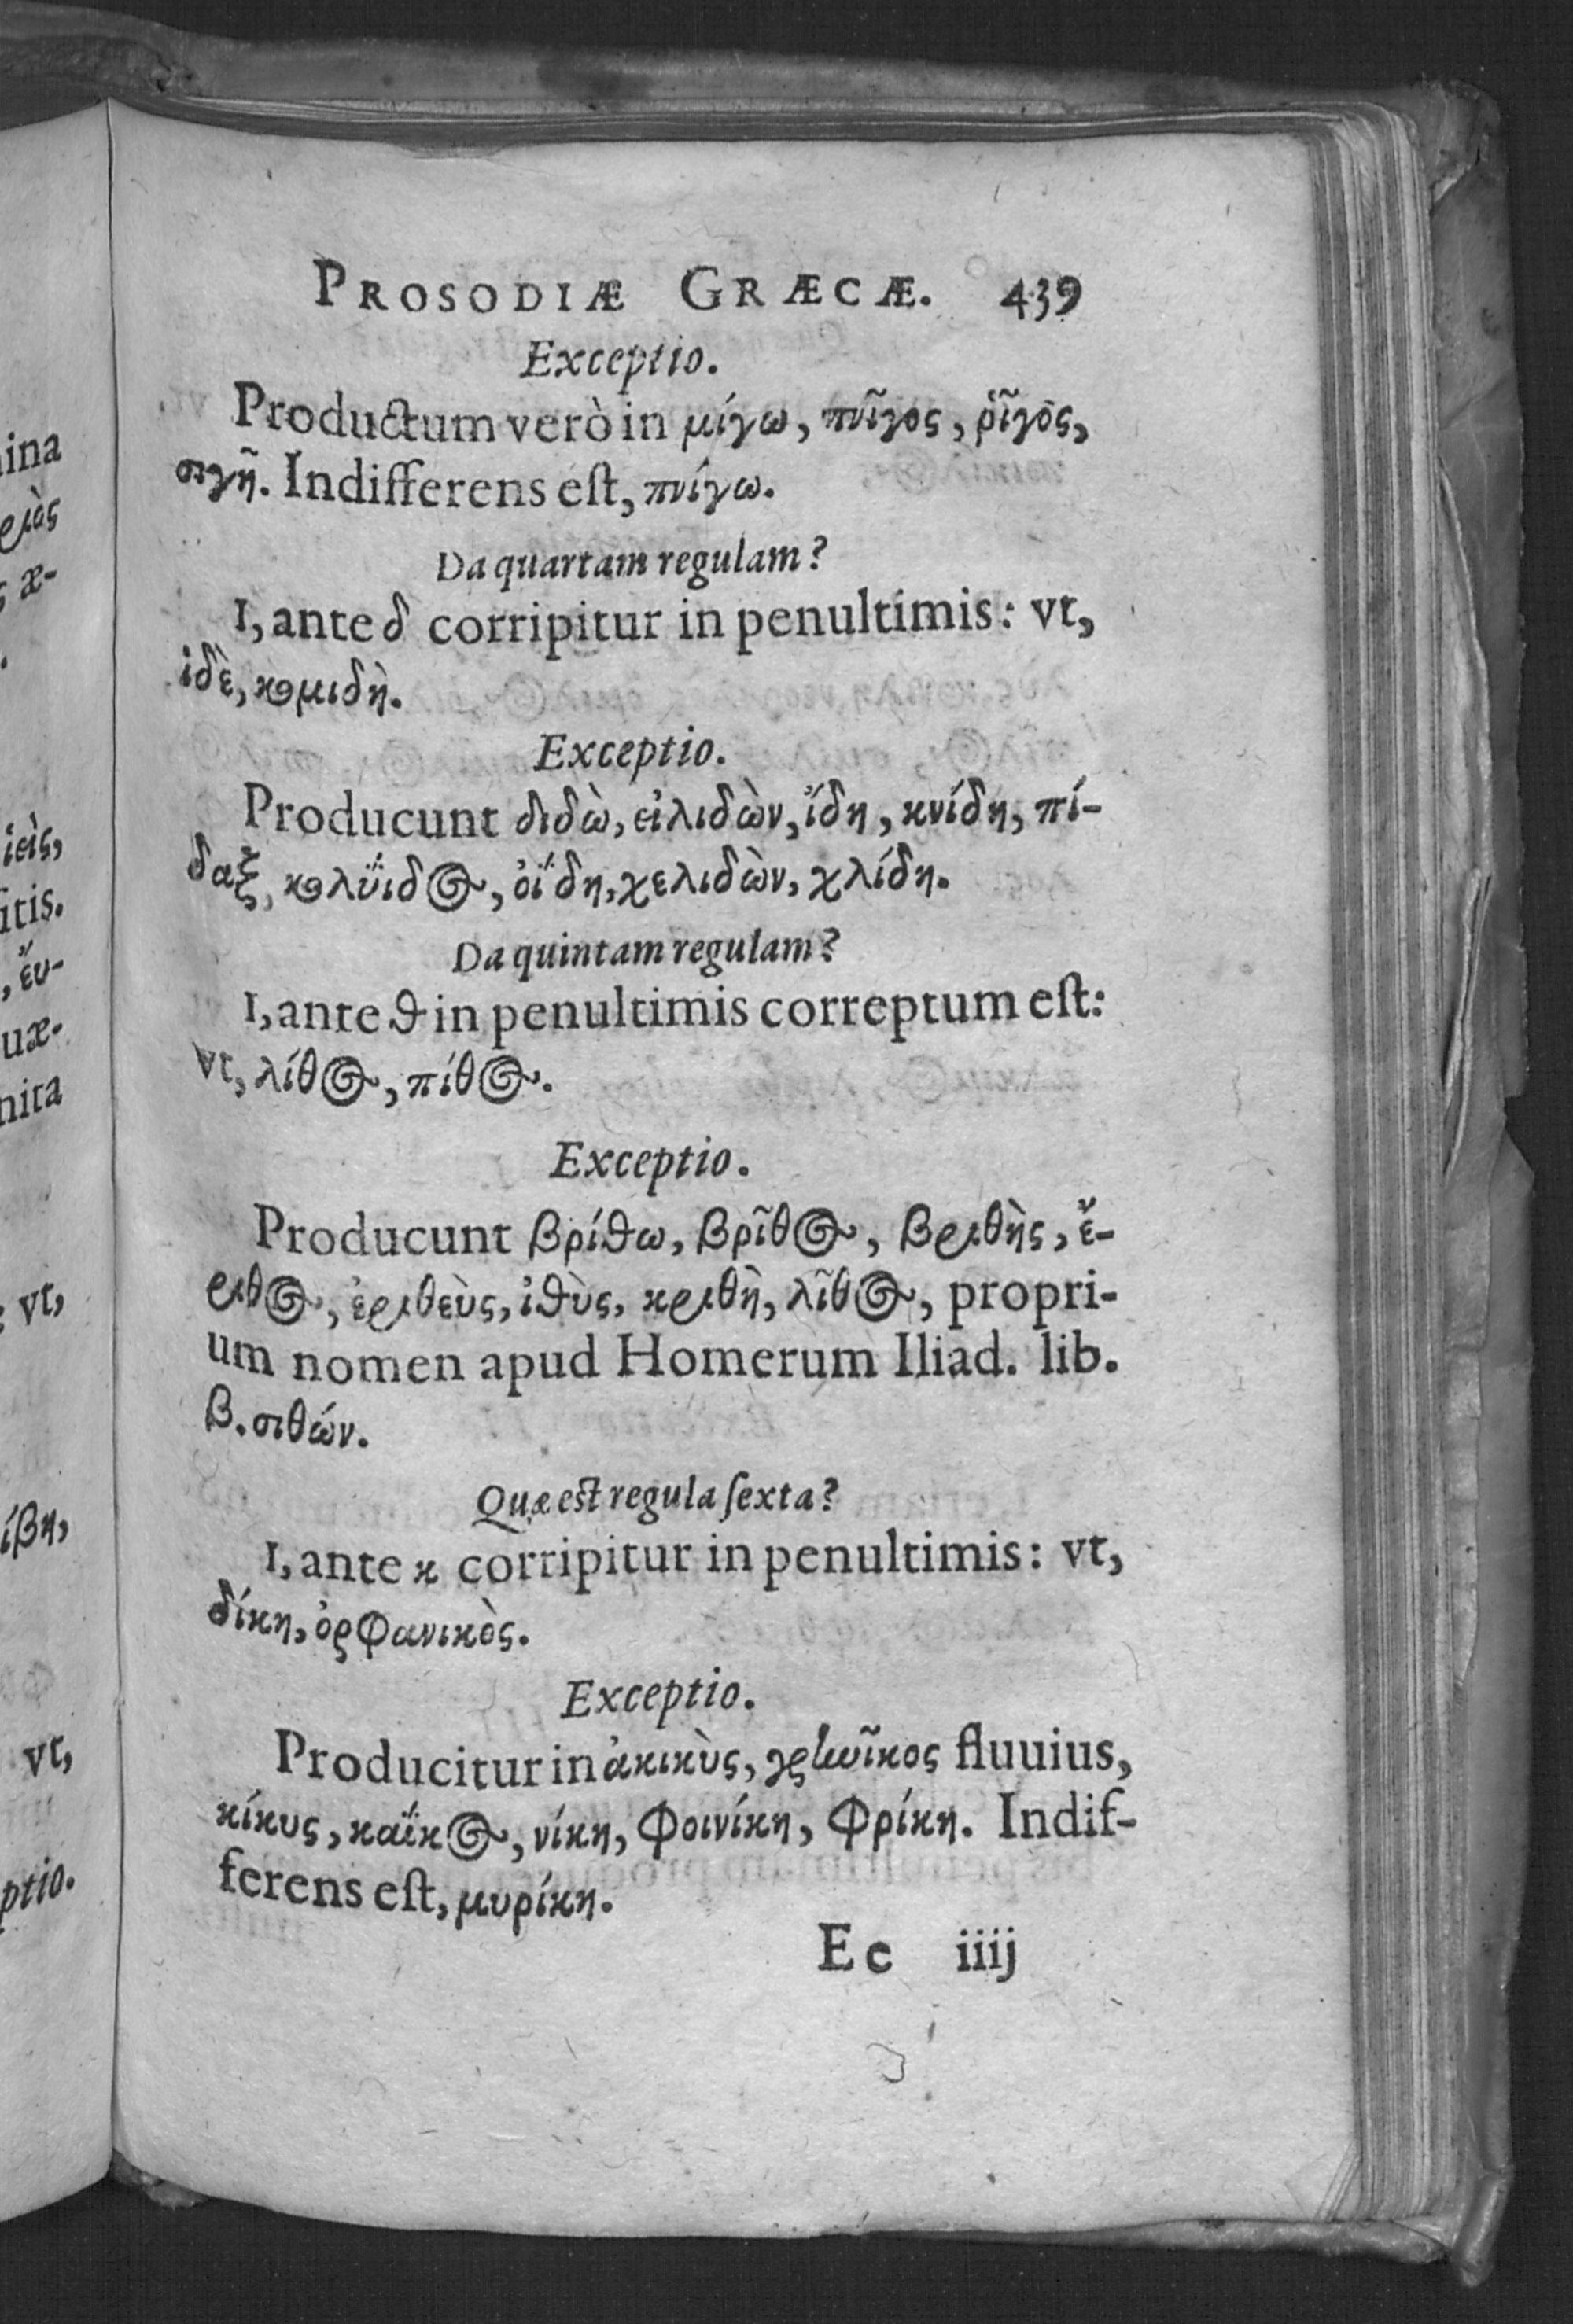 PROSODIÆ GRÆCÆ. 439
Exceptio.
Productum verò in μίγω, πνῖγος, ῥῖγος,
σιγῆ. Indifferens eſt, πνίγω.
Da quartam regulam?
I, ante δ corripitur in penultimis: vt,
ἰδὲ, κομιδὴ.
Exceptio.
Producunt διδὼ, εἰλιδὼν, ἴδη, κνίδη, πί-
δαξ, κολΰιδος, οἴδη, χελιδὼν, χλίδη.
Da quintam regulam?
I, ante ϑ in penultimis correptum eſt:
vt, λίθος, πίθος.
Exceptio.
Producunt βρίϑω, βρῖθος, βριθὴς, ἔ-
ριθος, ἐριθεὺς, ἰϑὺς, κριθὴ, λῖθος, propri-
um nomen apud Homerum Iliad. lib.
β. σιθών.
Quæ eſt regula ſexta?
I, ante κ corripitur in penultimis: vt,
δίκη, ὀρφανικὸς.
Exceptio.
Producitur in ἀκικὺς, γρανῖκος fluuius,
κίκυς, κάϊκος, νίκη, φοινίκη, φρίκη. Indif-
ferens eſt, μυρίκη.
Ee iiij
ina
ριὰς
æ-
ἱεὶς,
itis.
, ἔυ-
uæ.
nita
vt,
ίβη,
vt,
ptio.